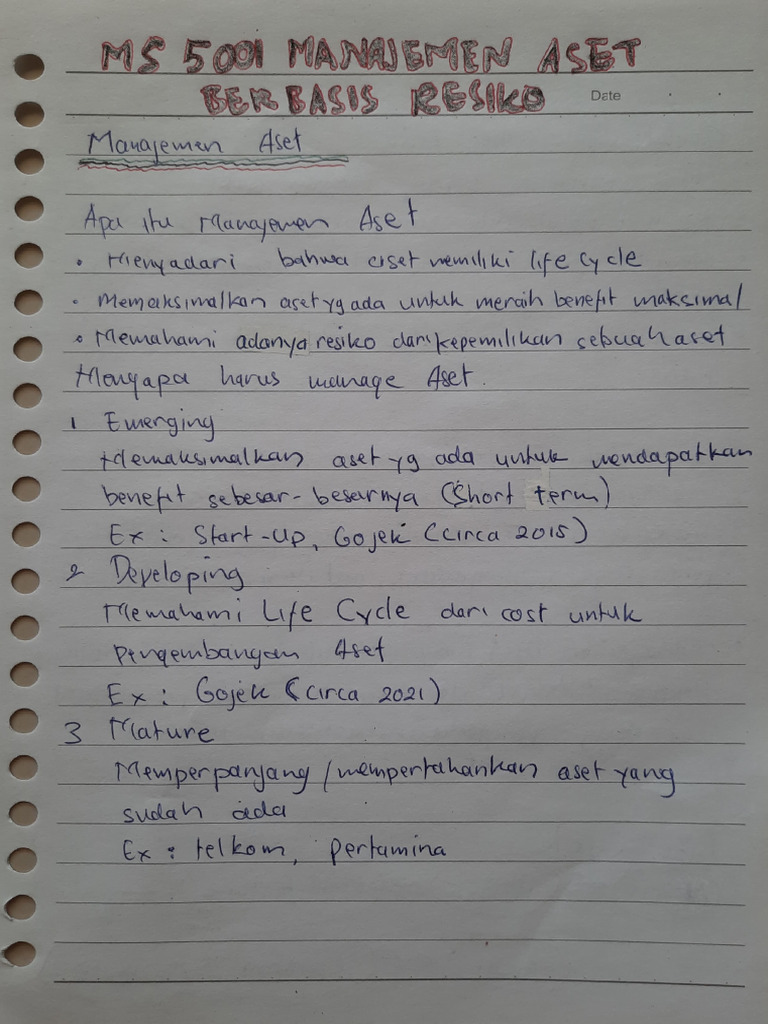 MS 5001 MANAJEMEN ASET
BERBASIS RESIKO
Date
Manajemen Aset
Apa itu Manajemen Aset
• Menyadari bahwa aset memiliki life Cycle
• Memaksimalkan aset yg ada untuk meraih benefit maksimal
• Memahami adanya resiko dari kepemilikan sebuah aset
Mengapa harus manage Aset.
1 Emerging
Memaksimalkan aset yg ada untuk mendapatkan
benefit sebesar-besarnya (Short term)
Ex : Start-Up, Gojek (Circa 2015)
2 Developing
Memahami Life Cycle dari cost untuk
pengembangan Aset
Ex : Gojek (Circa 2021)
3 Mature
Memperpanjang/mempertahankan aset yang
sudah ada
Ex : telkom, pertamina